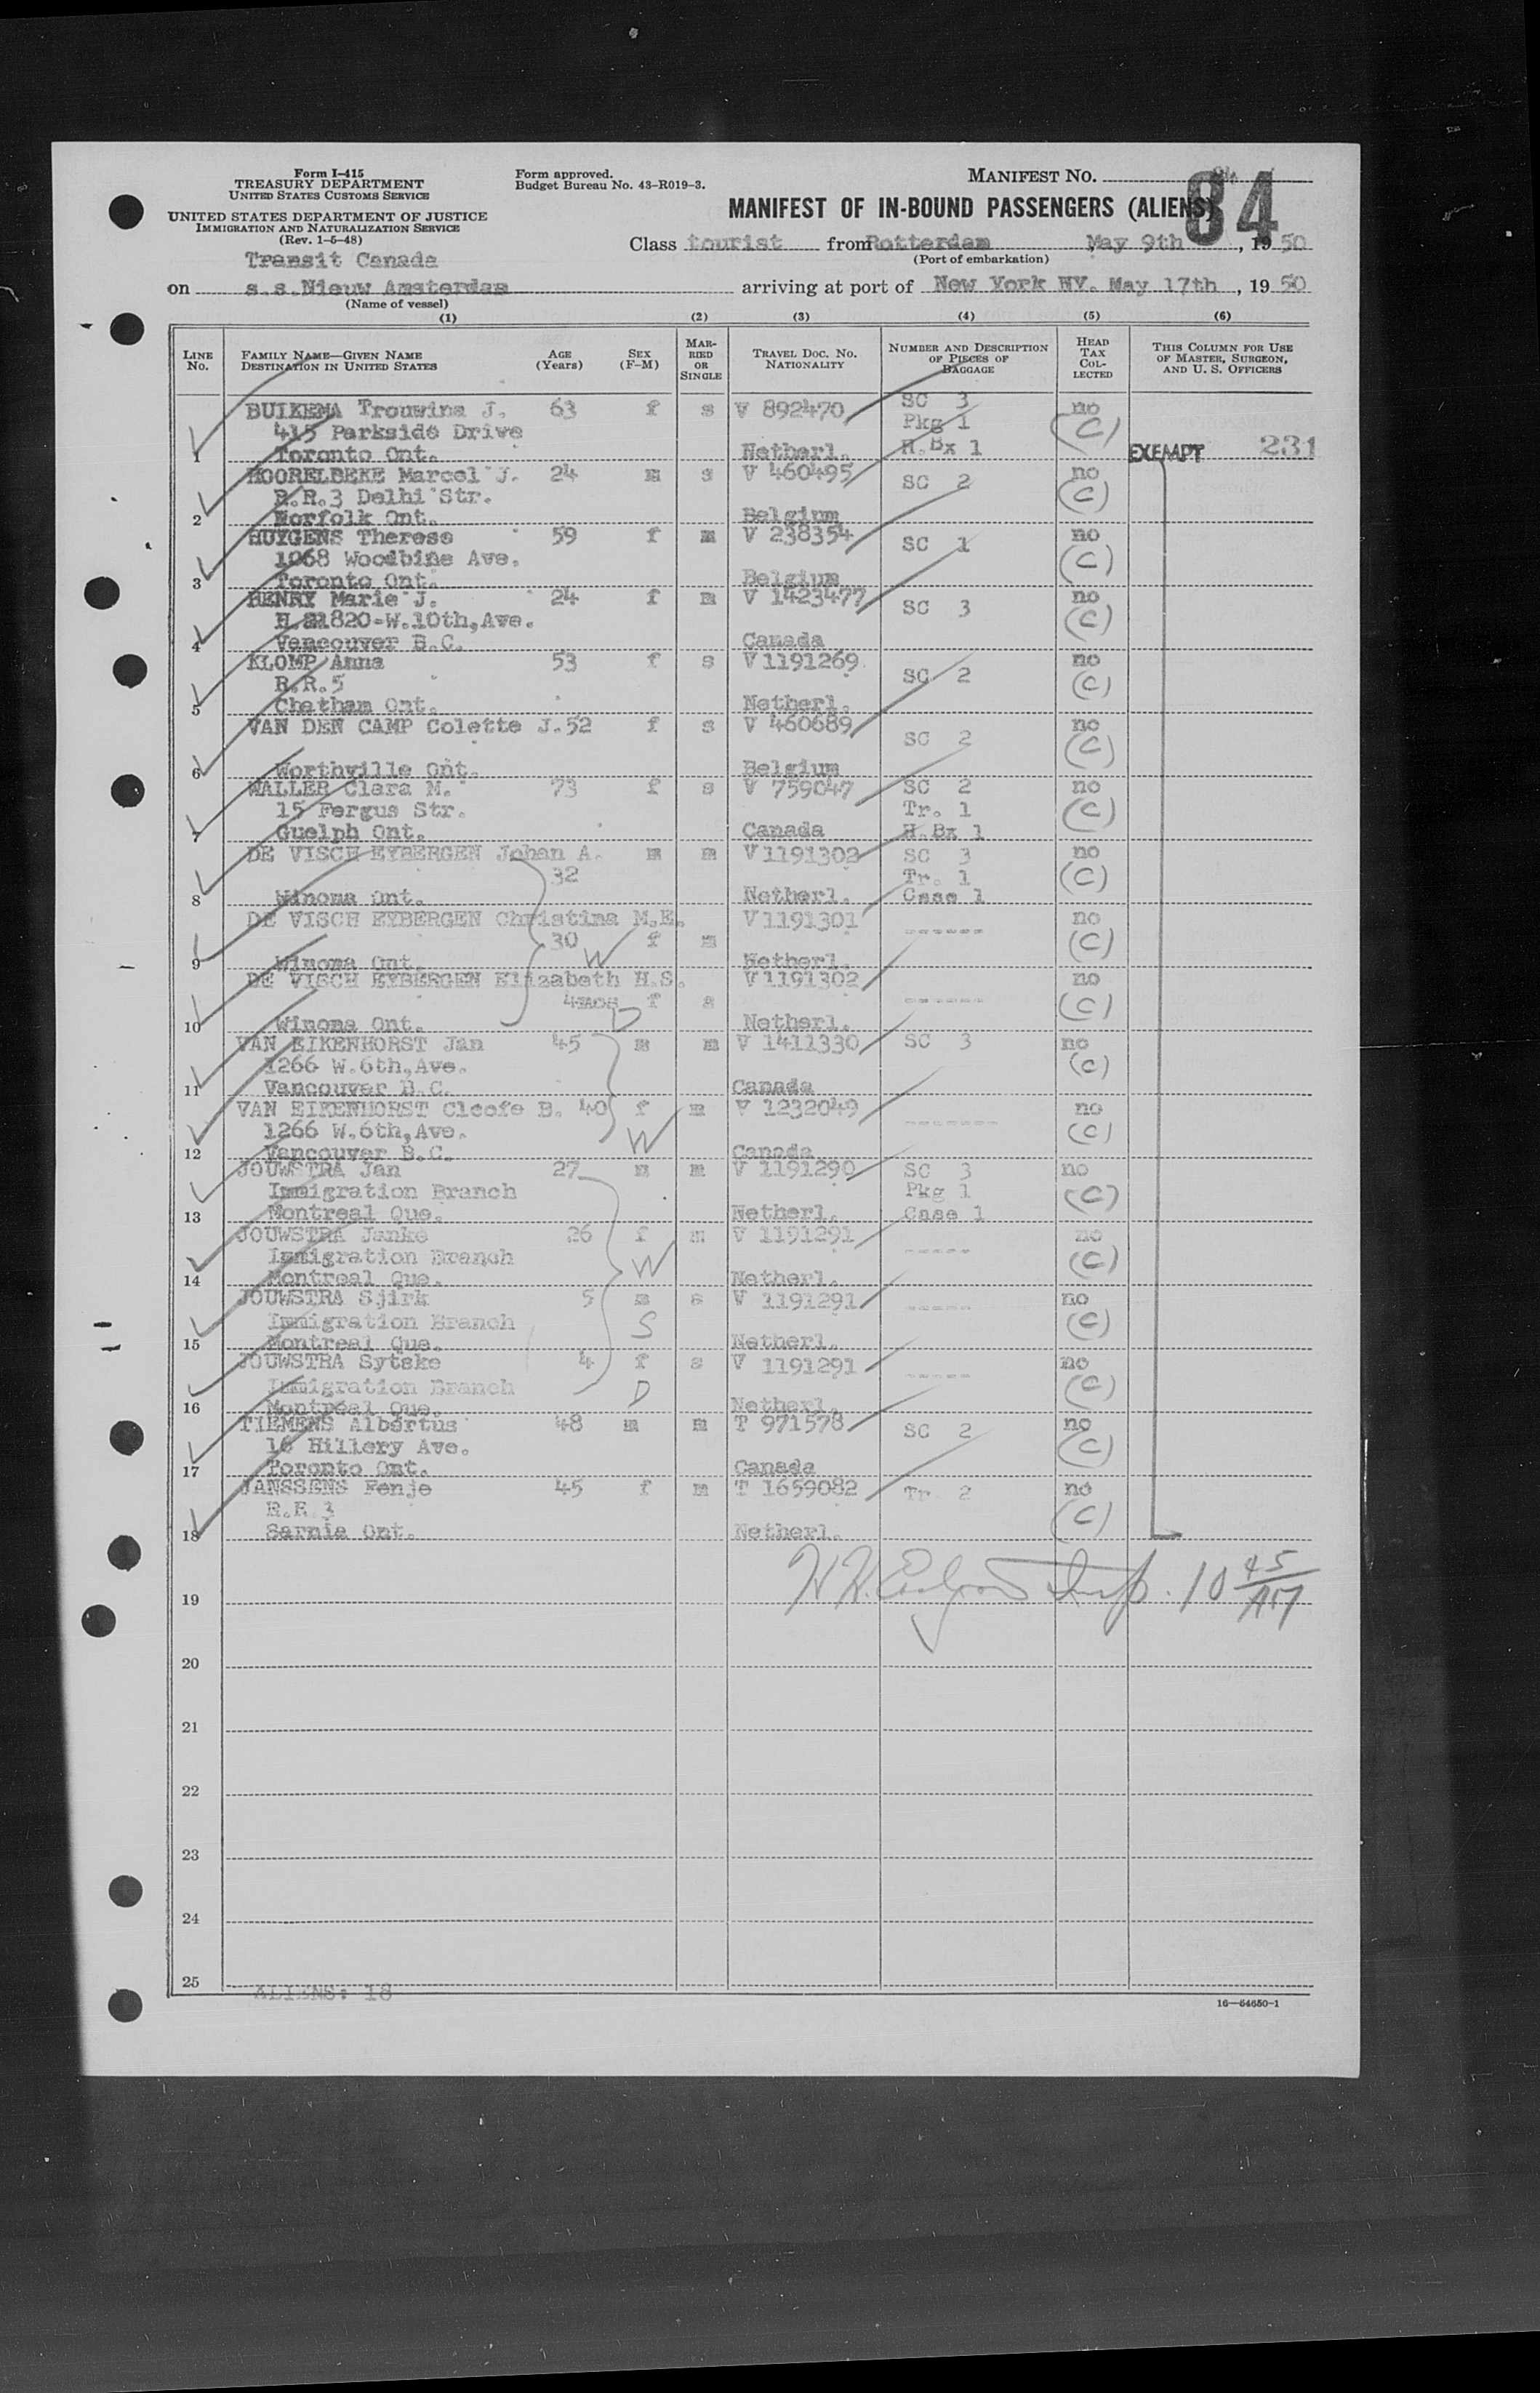 Form I-415
TREASURY DEPARTMENT
UNITED STATES CUSTOMS SERVICE
UNITED STATES DEPARTMENT OF JUSTICE
IMMIGRATION AND NATURALIZATION SERVICE
(Rev. 1-5-48)
Form approved.
Budget Bureau No. 43-R019-3.
MANIFEST NO.
84
MANIFEST OF IN-BOUND PASSENGERS (ALIENS)
Class tourist from Rotterdam May 9th, 1950
(Port of embarkation)
Transit Canada
on s.s.Nieuw Amsterdam arriving at port of New York NY. May 17th, 1950
(Name of vessel)
(1) (2) (3) (4) (5) (6)
LINE NO.
FAMILY NAME—GIVEN NAME
DESTINATION IN UNITED STATES
AGE (Years)
SEX (F-M)
MARRIED OR SINGLE
TRAVEL DOC. NO. NATIONALITY
NUMBER AND DESCRIPTION OF PIECES OF BAGGAGE
HEAD TAX COLLECTED
THIS COLUMN FOR USE OF MASTER, SURGEON, AND U. S. OFFICERS
BUIKEMA Trouwina J. 63 f s V 892470 SC 3 no
415 Parkside Drive Pkg 1 (C)
1 Toronto Ont. Netherl. H.Bx 1 EXEMPT 231
HOORELBEKE Marcel J. 24 m s V 460495 SC 2 no
R.R.3 Delhi Str. (C)
2 Norfolk Ont. Belgium
HUYGENS Therese 59 f m V 238354 SC 1 no
1068 Woodbine Ave. (C)
3 Toronto Ont. Belgium
HENRY Marie J. 24 f m V 1423477 SC 3 no
1820-W.10th,Ave. (C)
4 Vancouver B.C. Canada
KLOMP Anna 53 f s V 1191269 SC 2 no
R.R.5 (C)
5 Chatham Ont. Netherl.
VAN DEN CAMP Colette J. 52 f s V 460689 SC 2 no
(C)
6 Worthville Ont. Belgium
WALLER Clara M. 73 f s V 759047 SC 2 no
15 Fergus Str. Tr. 1 (C)
7 Guelph Ont. Canada H.Bx 1
DE VISCH EYBERGEN Johan A. m m V 1191302 SC 3 no
32 Tr. 1 (C)
8 Winona Ont. Netherl. Case 1
DE VISCH EYBERGEN Christina M.E. V 1191301 ------ no
30 f m (C)
9 Winona Ont. W Netherl.
DE VISCH EYBERGEN Elizabeth H.S. V 1191302 no
4mos f s ------ (C)
10 Winona Ont. D Netherl.
VAN EIKENHORST Jan 45 m m V 1411330 SC 3 no
1266 W.6th,Ave. (C)
11 Vancouver B.C. Canada
VAN EIKENHORST Cleofe B. 40 f m V 1232049 ------- no
1266 W.6th,Ave. W (C)
12 Vancouver B.C. Canada
JOUWSTRA Jan 27 m m V 1191290 SC 3 no
Immigration Branch Pkg 1 (C)
13 Montreal Que. Netherl. Case 1
JOUWSTRA Janke 26 f m V 1191291 ----- no
Immigration Branch W (C)
14 Montreal Que. Netherl.
JOUWSTRA Sjirk 5 m s V 1191291 ----- no
Immigration Branch S (C)
15 Montreal Que. Netherl.
JOUWSTRA Sytske 4 f s V 1191291 ----- no
Immigration Branch D (C)
16 Montreal Que. Netherl.
TIEMENS Albertus 48 m m T 971578 SC 2 no
16 Hillery Ave. (C)
17 Toronto Ont. Canada
JANSSENS Fenje 45 f m T 1659082 Tr. 2 no
R.R.3 (C)
18 Sarnia Ont. Netherl.
19 Insp. 10 45/AM
20
21
22
23
24
25
ALIENS: 18
16—54650-1